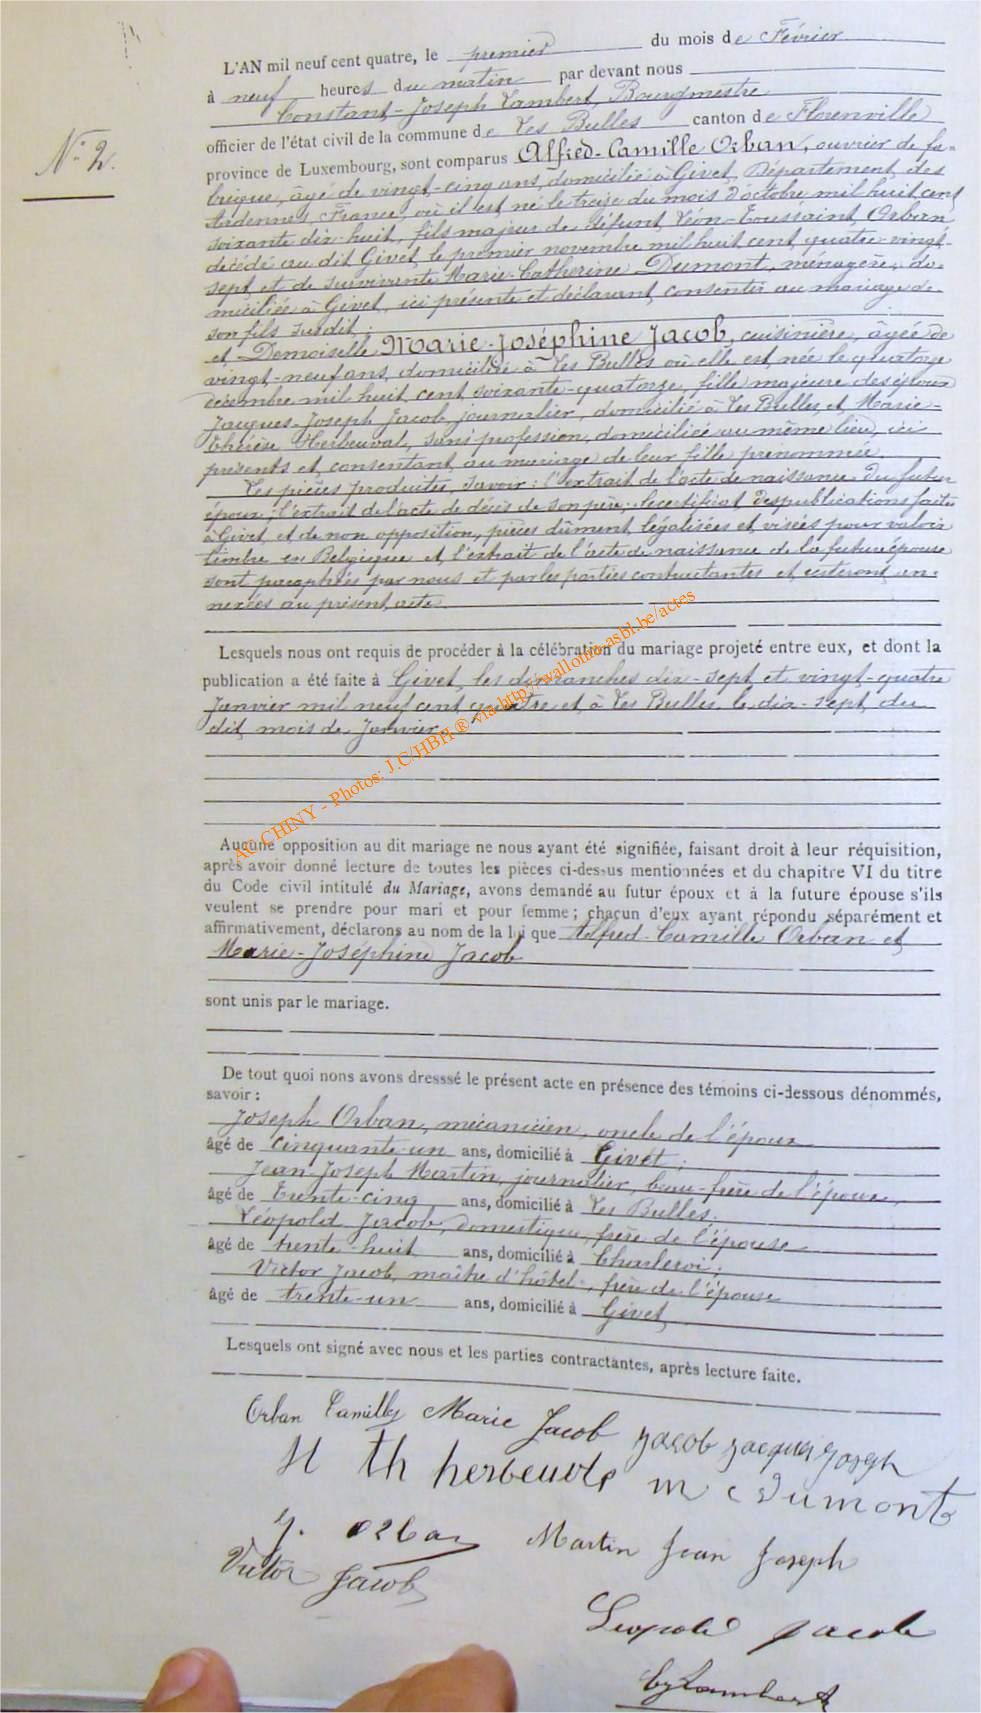 L'AN mil neuf cent quatre, le premier du mois de Février
à neuf heures du matin par devant nous
Constant-Joseph Lambert, Bourgmestre
officier de l'état civil de la commune de Les Bulles canton de Florenville
N° 2.
province de Luxembourg, sont comparus Alfred-Camille Orban, ouvrier de fa-
brique, âgé de vingt-cinq ans, domicilié à Givet, Département des
Ardennes, France, où il est né le treize du mois d'octobre mil huit cent
soixante dix-huit, fils majeur de défunt Léon-Toussaint Orban
décédé au dit Givet le premier novembre mil huit cent quatre-vingt-
sept et de survivante Marie-Catherine Dumont, ménagère, do-
miciliée à Givet, ici présente et déclarant consentir au mariage de
son fils susdit;
et Demoiselle Marie-Joséphine Jacob, cuisinière, âgée de
vingt-neuf ans, domiciliée à Les Bulles où elle est née le quatorze
décembre mil huit cent soixante-quatorze, fille majeure des époux
Jacques-Joseph Jacob, journalier, domicilié à Les Bulles et Marie-
Thérèse Herbeuval, sans profession, domiciliée au même lieu, ici
présents et consentant au mariage de leur fille prénommée.
Les pièces produites, savoir: l'extrait de l'acte de naissance du futur
époux; l'extrait de l'acte de décès de son père; le certificat des publications faites
à Givet et de non opposition, pièces dûment légalisées et visées pour valoir
timbre en Belgique et l'extrait de l'acte de naissance de la future épouse
sont paraphées par nous et par les parties contractantes et resteront an-
nexées au présent acte.
Lesquels nous ont requis de procéder à la célébration du mariage projeté entre eux, et dont la
publication a été faite à Givet, les dimanches dix-sept et vingt-quatre
Janvier mil neuf cent quatre et à Les Bulles, le dix-sept du
dit mois de Janvier.
AC CHINY - Photos: J.C/HBH ® via http://wallonia-asbl.be/actes
Aucune opposition au dit mariage ne nous ayant été signifiée, faisant droit à leur réquisition,
après avoir donné lecture de toutes les pièces ci-dessus mentionnées et du chapitre VI du titre
du Code civil intitulé du Mariage, avons demandé au futur époux et à la future épouse s'ils
veulent se prendre pour mari et pour femme; chacun d'eux ayant répondu séparément et
affirmativement, déclarons au nom de la loi que Alfred-Camille Orban et
Marie-Joséphine Jacob
sont unis par le mariage.
De tout quoi nons avons dresssé le présent acte en présence des témoins ci-dessous dénommés,
savoir:
Joseph Orban, mécanicien, oncle de l'époux
âgé de cinquante-un ans, domicilié à Givet;
Jean-Joseph Martin, journalier, beau-frère de l'épouse,
âgé de trente-cinq ans, domicilié à Les Bulles.
Léopold Jacob, domestique, frère de l'épouse
âgé de trente-huit ans, domicilié à Charleroi;
Victor Jacob, maître d'hôtel, frère de l'épouse
âgé de trente-un ans, domicilié à Givet
Lesquels ont signé avec nous et les parties contractantes, après lecture faite.
Orban Camille Marie Jacob Jacob Jacques Joseph
M th herbeuvole m c Dumont
J. Orban Martin Jean Joseph
Victor Jacob
Léopold Jacob
Lambert